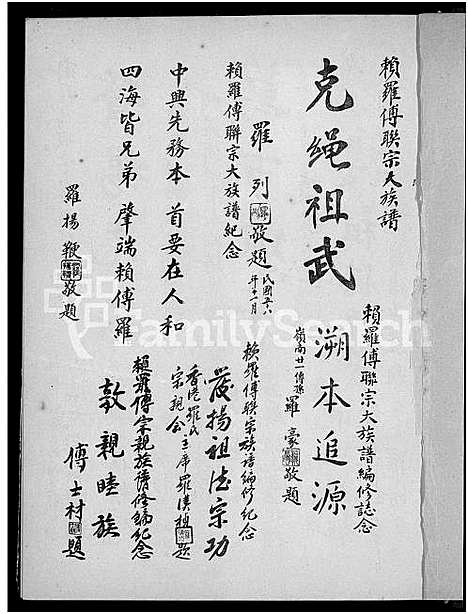 賴羅傅聯宗大族譜
克繩祖武
羅列敬題 民國五六年十一月
賴羅傅聯宗大族譜紀念
中興先務本 首要在人和
四海皆兄弟 肇端賴傅羅
羅揚鞭敬題
賴羅傅聯宗大族譜編修誌念
溯本追源
嶺南廿一傳孫 羅豪敬題
賴羅傅聯宗族譜編修紀念
發揚祖德宗功
香港羅氏宗親會主席羅傑植題
賴羅傅宗親族譜修編紀念
敦親睦族
傅士材題
FamilySearch